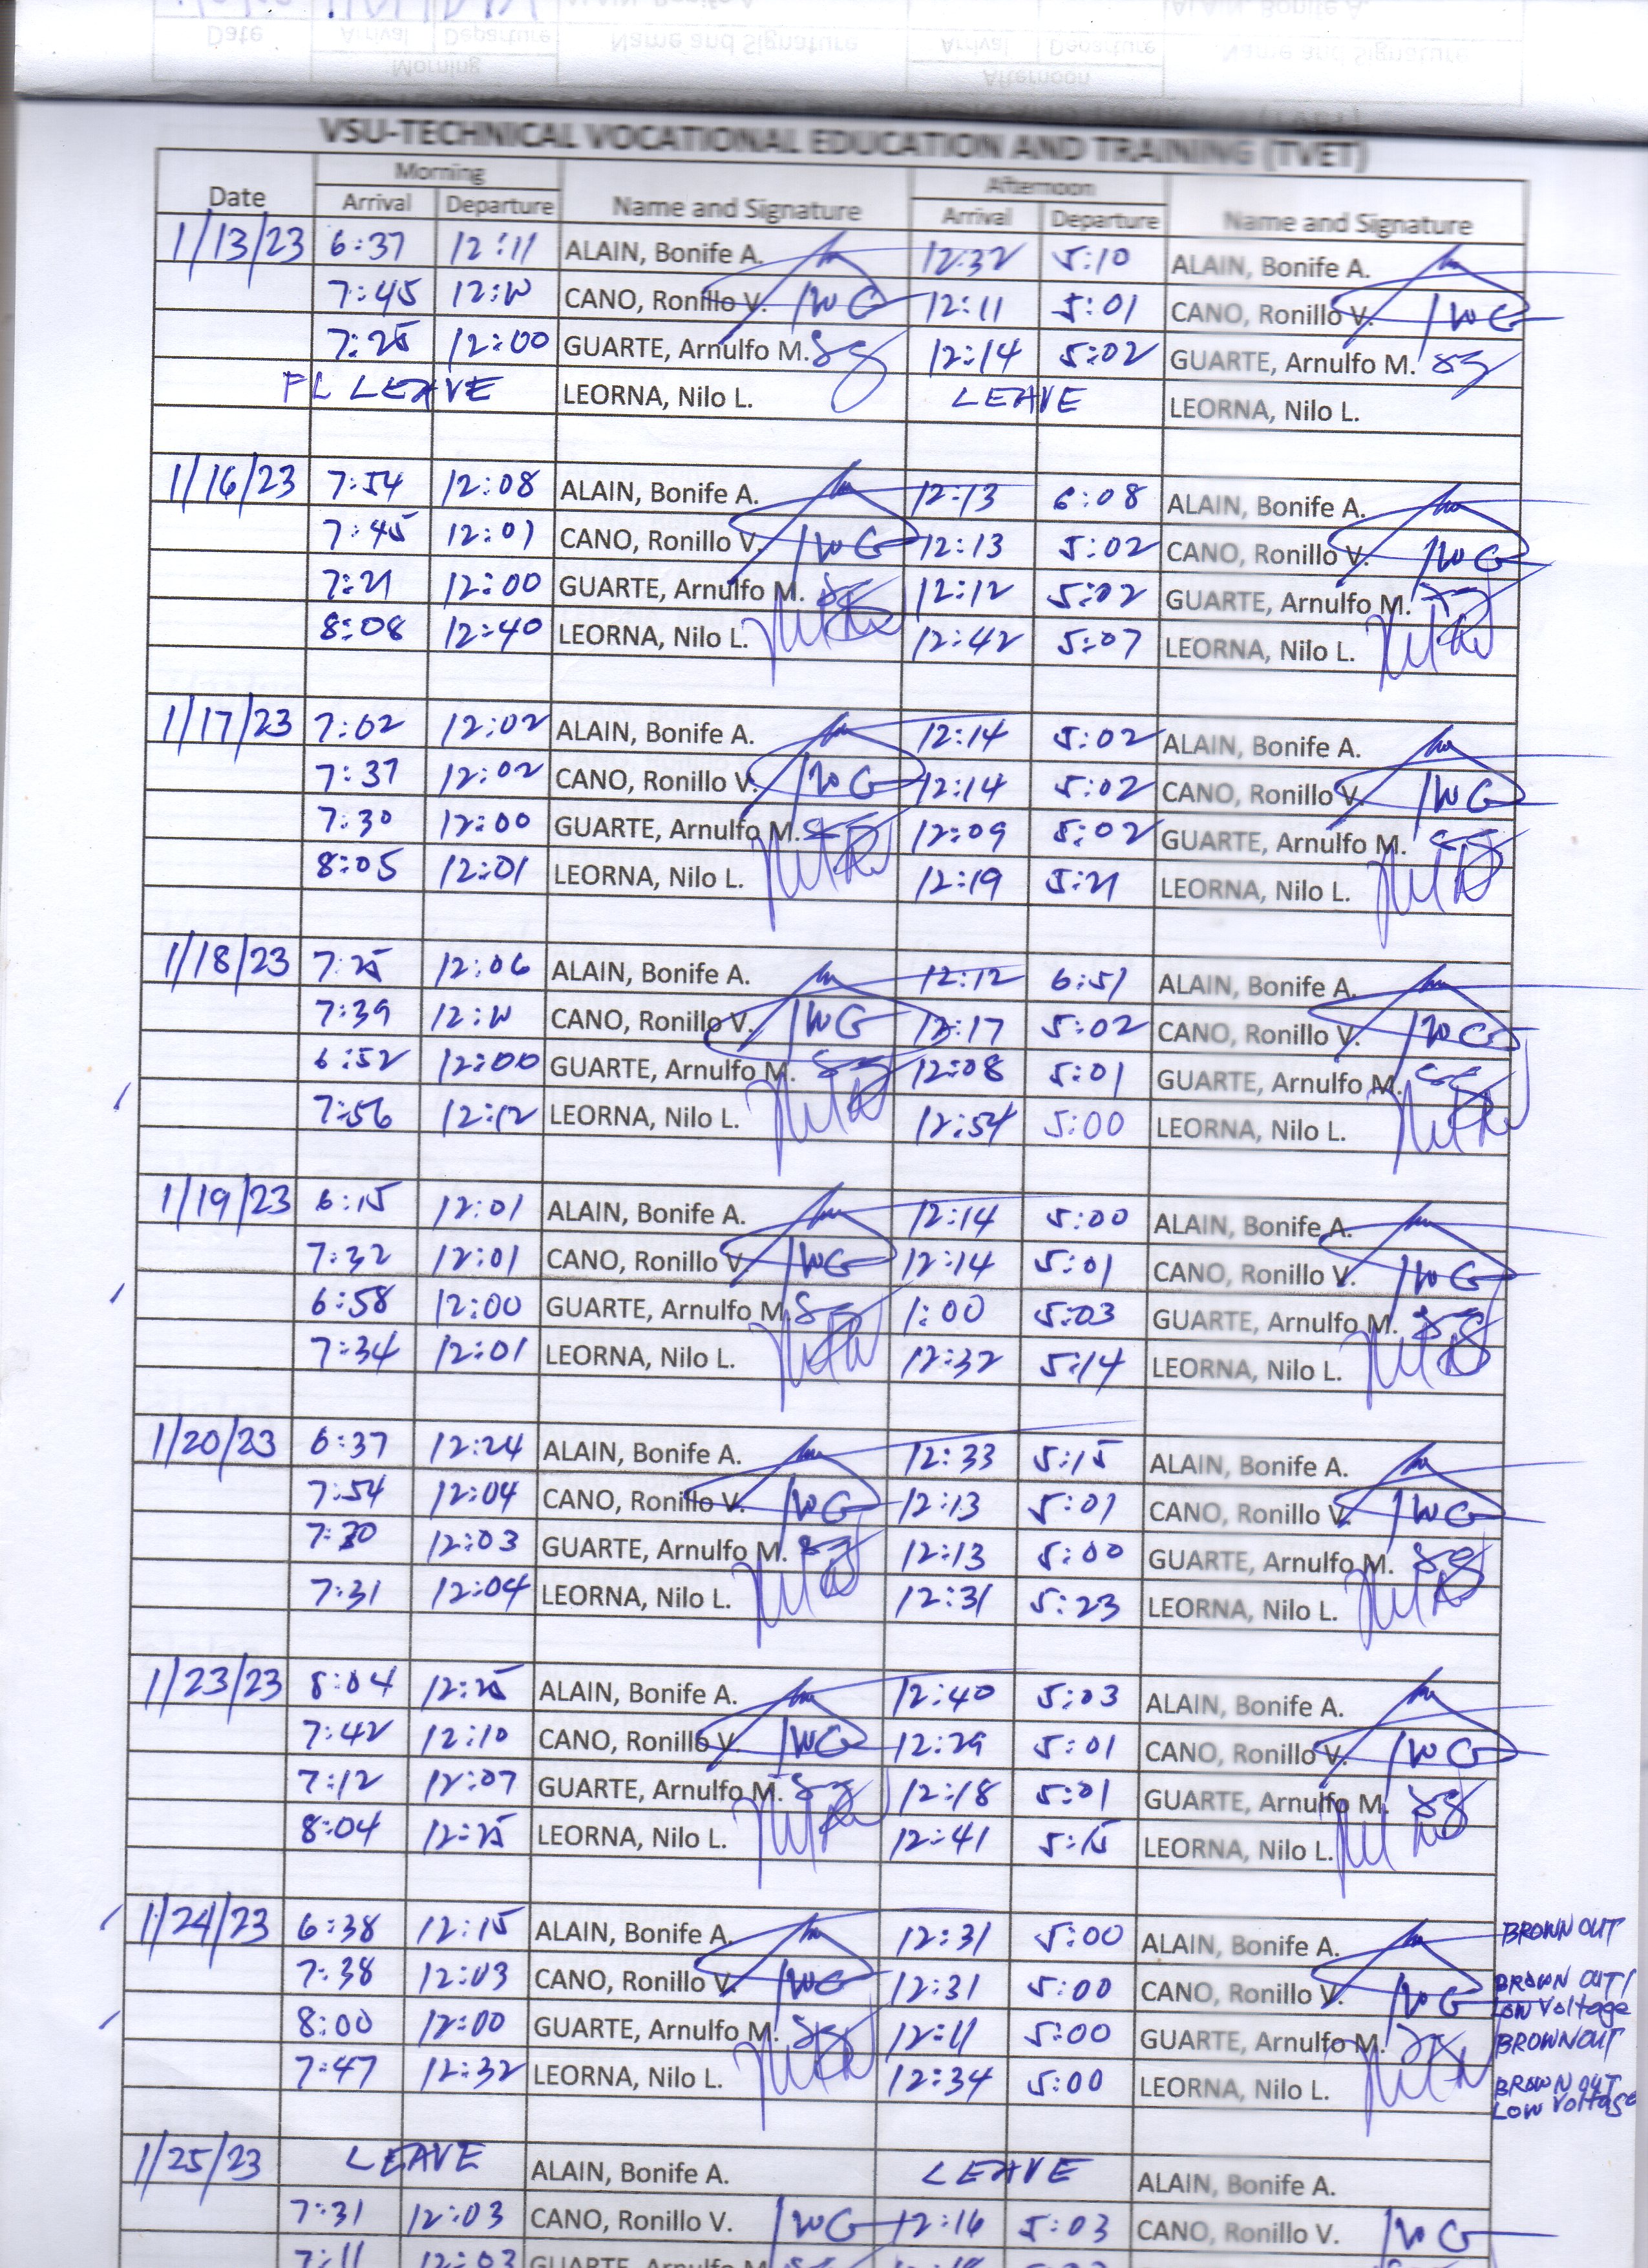 VSU-TECHNICAL VOCATIONAL EDUCATION AND TRAINING (TVET)
Morning Afternoon
Date Arrival Departure Name and Signature Arrival Departure Name and Signature
1/13/23 6:37 12:11 ALAIN, Bonife A. 12:32 5:10 ALAIN, Bonife A.
7:45 CANO, Ronillo V. 12:11 5:01 CANO, Ronillo V.
7:25 12:00 GUARTE, Arnulfo M. 12:14 5:02 GUARTE, Arnulfo M.
FL LEAVE LEORNA, Nilo L. LEAVE LEORNA, Nilo L.
1/16/23 7:54 12:08 ALAIN, Bonife A. 12:13 6:08 ALAIN, Bonife A.
7:45 12:01 CANO, Ronillo V. 12:13 5:02 CANO, Ronillo V.
7:21 12:00 GUARTE, Arnulfo M. 12:12 5:02 GUARTE, Arnulfo M.
8:08 12:40 LEORNA, Nilo L. 12:42 5:07 LEORNA, Nilo L.
1/17/23 7:02 12:02 ALAIN, Bonife A. 12:14 5:02 ALAIN, Bonife A.
7:37 12:02 CANO, Ronillo V. 12:14 5:02 CANO, Ronillo V.
7:30 12:00 GUARTE, Arnulfo M. 12:09 5:02 GUARTE, Arnulfo M.
8:05 12:01 LEORNA, Nilo L. 12:19 5:21 LEORNA, Nilo L.
1/18/23 7:25 12:06 ALAIN, Bonife A. 12:12 6:51 ALAIN, Bonife A.
7:39 CANO, Ronillo V. 12:17 5:02 CANO, Ronillo V.
6:52 12:00 GUARTE, Arnulfo M. 12:08 5:01 GUARTE, Arnulfo M.
7:56 12:12 LEORNA, Nilo L. 12:54 5:00 LEORNA, Nilo L.
1/19/23 6:15 12:01 ALAIN, Bonife A. 12:14 5:00 ALAIN, Bonife A.
7:32 12:01 CANO, Ronillo V. 12:14 5:01 CANO, Ronillo V.
6:58 12:00 GUARTE, Arnulfo M. 1:00 5:03 GUARTE, Arnulfo M.
7:34 12:01 LEORNA, Nilo L. 12:32 5:14 LEORNA, Nilo L.
1/20/23 6:37 12:24 ALAIN, Bonife A. 12:33 5:15 ALAIN, Bonife A.
7:54 12:04 CANO, Ronillo V. 12:13 5:01 CANO, Ronillo V.
7:30 12:03 GUARTE, Arnulfo M. 12:13 5:00 GUARTE, Arnulfo M.
7:31 12:04 LEORNA, Nilo L. 12:31 5:23 LEORNA, Nilo L.
1/23/23 8:04 12:25 ALAIN, Bonife A. 12:40 5:03 ALAIN, Bonife A.
7:42 12:10 CANO, Ronillo V. 12:29 5:01 CANO, Ronillo V.
7:12 12:07 GUARTE, Arnulfo M. 12:18 5:01 GUARTE, Arnulfo M.
8:04 12:25 LEORNA, Nilo L. 12:41 5:15 LEORNA, Nilo L.
1/24/23 6:38 12:15 ALAIN, Bonife A. 12:31 5:00 ALAIN, Bonife A. BROWN OUT
7:38 12:03 CANO, Ronillo V. 12:31 5:00 CANO, Ronillo V. BROWN OUT/
Low Voltage
8:00 12:00 GUARTE, Arnulfo M. 12:11 5:00 GUARTE, Arnulfo M. BROWNOUT
7:47 12:32 LEORNA, Nilo L. 12:34 5:00 LEORNA, Nilo L. BROWN OUT
LOW Voltage
1/25/23 LEAVE ALAIN, Bonife A. LEAVE ALAIN, Bonife A.
7:31 12:03 CANO, Ronillo V. 12:16 5:03 CANO, Ronillo V.
7:11 12:03 GUARTE, Arnulfo M. GUARTE, Arnulfo M.